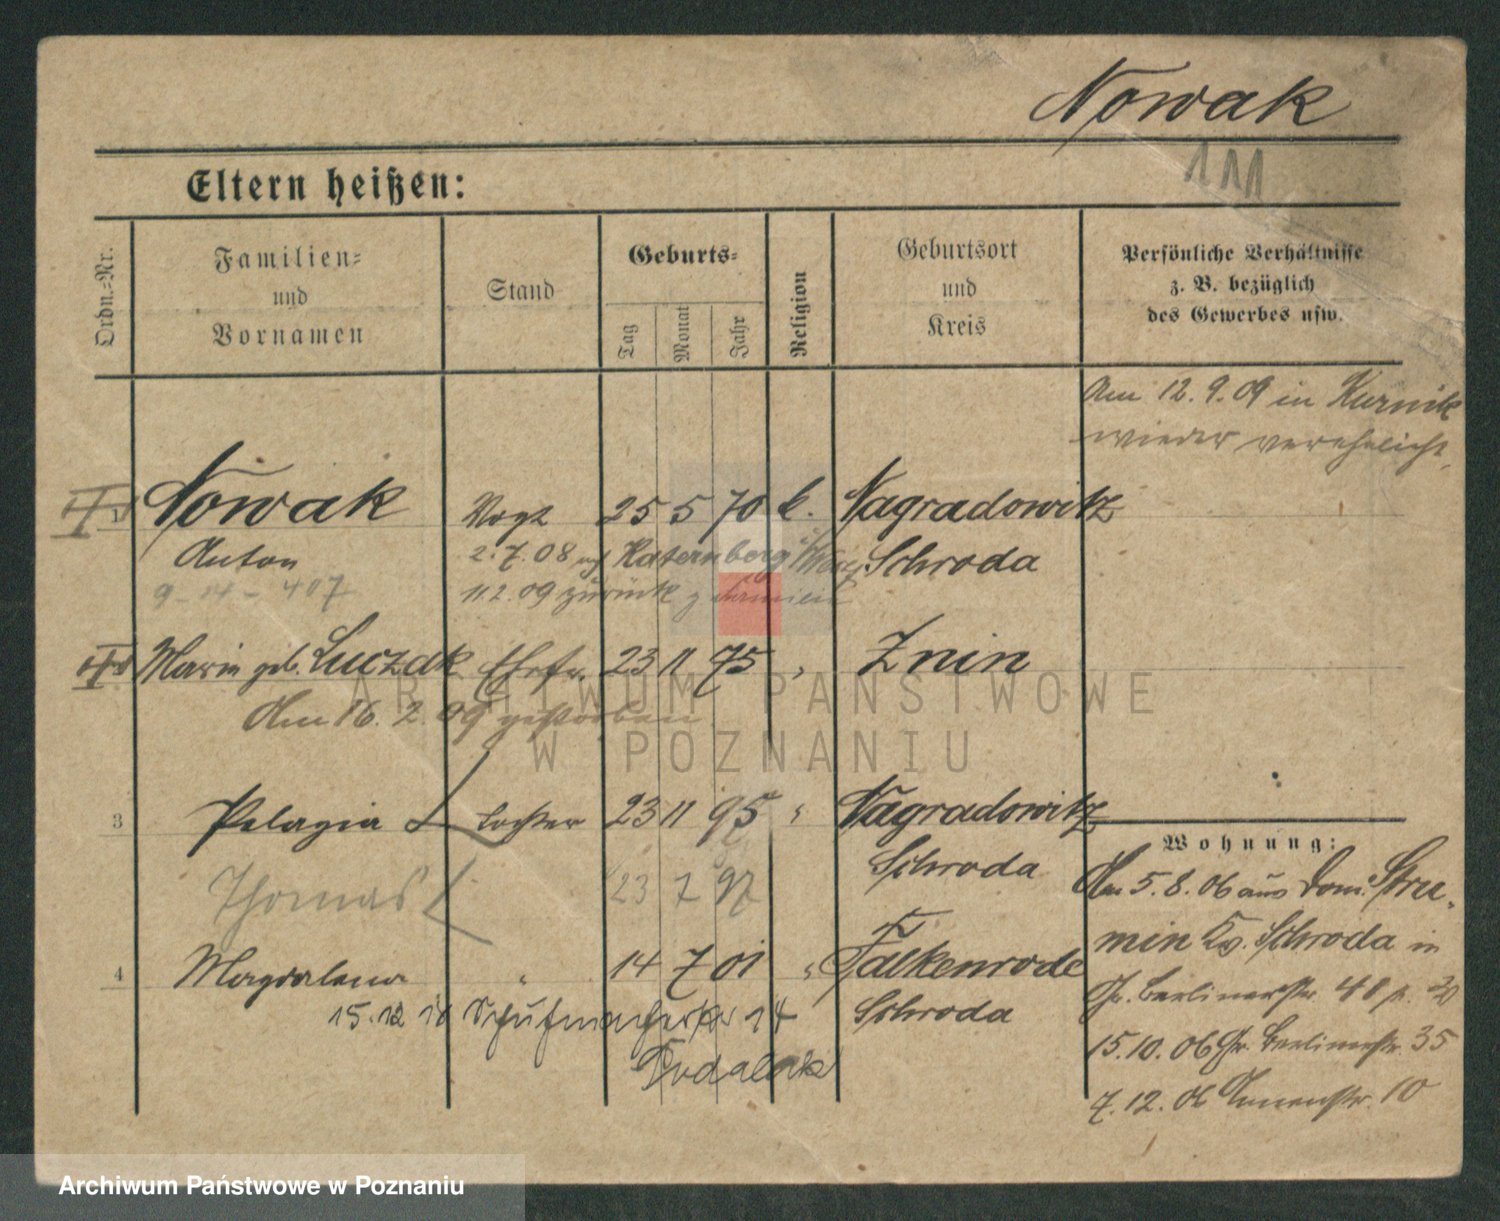 Nowak
111
Eltern heißen:
Ordn.-Nr.
Familien-
und
Vornamen
Stand
Geburts-
Tag
Monat
Jahr
Religion
Geburtsort
und
Kreis
Persönliche Verhältnisse
z. B. bezüglich
des Gewerbes usw.
Am 12. 9. 09 in Kurnik
wieder verehelicht.
1 Nowak Vogt 25 5 70 k. Nagradowitz
Anton 2. 7. 08 Katernberg Schroda
9-14-407 11 2. 09 zurück z Familie
Marie geb. Luczak Ehefr. 23 11 75 " Znin
Am 16. 2. 09 gestorben
3 Pelagia Tochter 23 11 95 " Nagradowitz
Schroda
Thomas 23 7 97
4 Magdalena " 14 7 01 " Falkenrode
Schroda
15. 12 Schuhmacherstr 14
Wohnung:
Am 5. 8. 06 aus Dom. Stru-
min Kr. Schroda in
Gr. Berlinerstr. 40
15. 10. 06 Gr. Berlinerstr. 35
7. 12. 06 10
ARCHIWUM PAŃSTWOWE
W POZNANIU
Archiwum Państwowe w Poznaniu